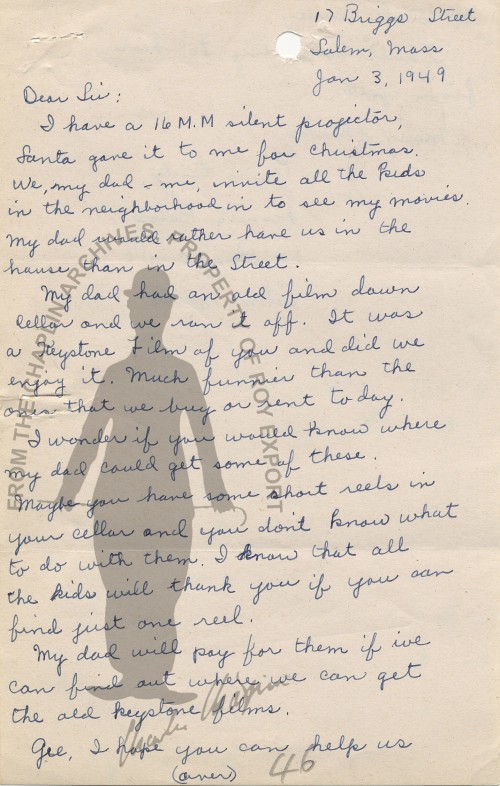 17 Briggs Street
Salem, Mass
Jan 3, 1949
Dear Sir:
I have a 16 M.M silent projector,
Santa gave it to me for Christmas.
We, my dad - me, invite all the kids
in the neighborhood in to see my movies.
My dad would rather have us in the
house than in the Street.
My dad had an old film down
cellar and we ran it off. It was
a Keystone Film of you and did we
enjoy it. Much funnier than the
ones that we buy or rent today.
I wonder if you would know where
my dad could get some of these.
Maybe you have some short reels in
your cellar and you don't know what
to do with them. I know that all
the kids will thank you if you can
find just one reel.
My dad will pay for them if we
can find out where we can get
the old Keystone films.
Gee, I hope you can help us
(over)
46
FROM THE CHAPLIN ARCHIVES, PROPERTY OF ROY EXPORT